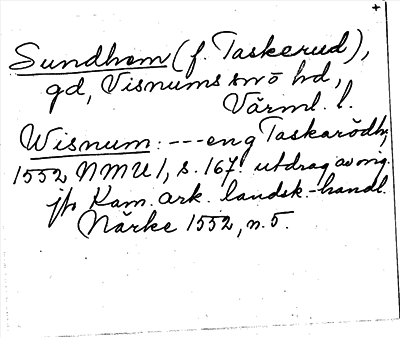 +
Sundhem (f. Taskerud),
gd, Visnums snō hd,
Värml. l.
Wisnum: --- eng Taskarödh,
1552 NMU 1, s. 167. utdrag av orig.
jfr Kam. ark. landsk.-handl.
Närke 1552, n. 5.